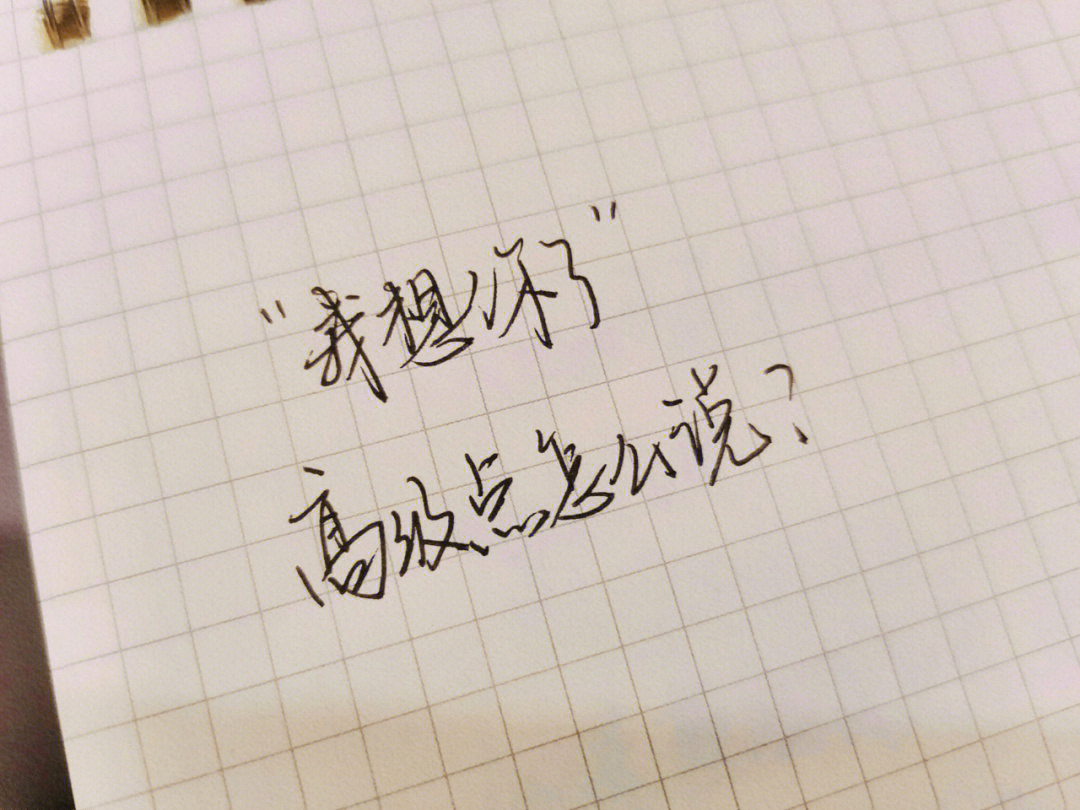 "我想你了"
高级点怎么说?